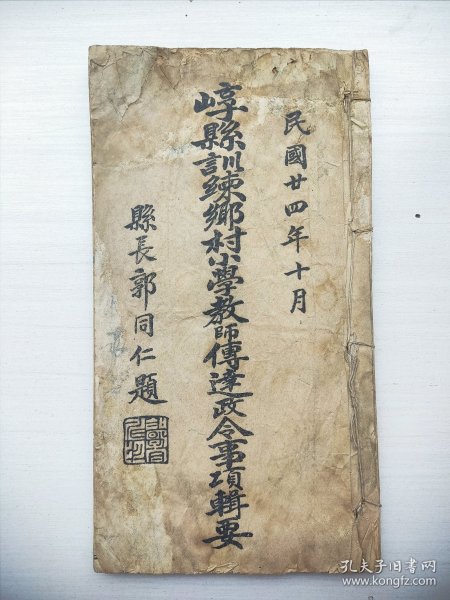 民國廿四年十月
崞縣訓練鄉村小學教師傳達政令事項輯要
縣長郭同仁題
孔夫子旧书网
www.kongfz.com